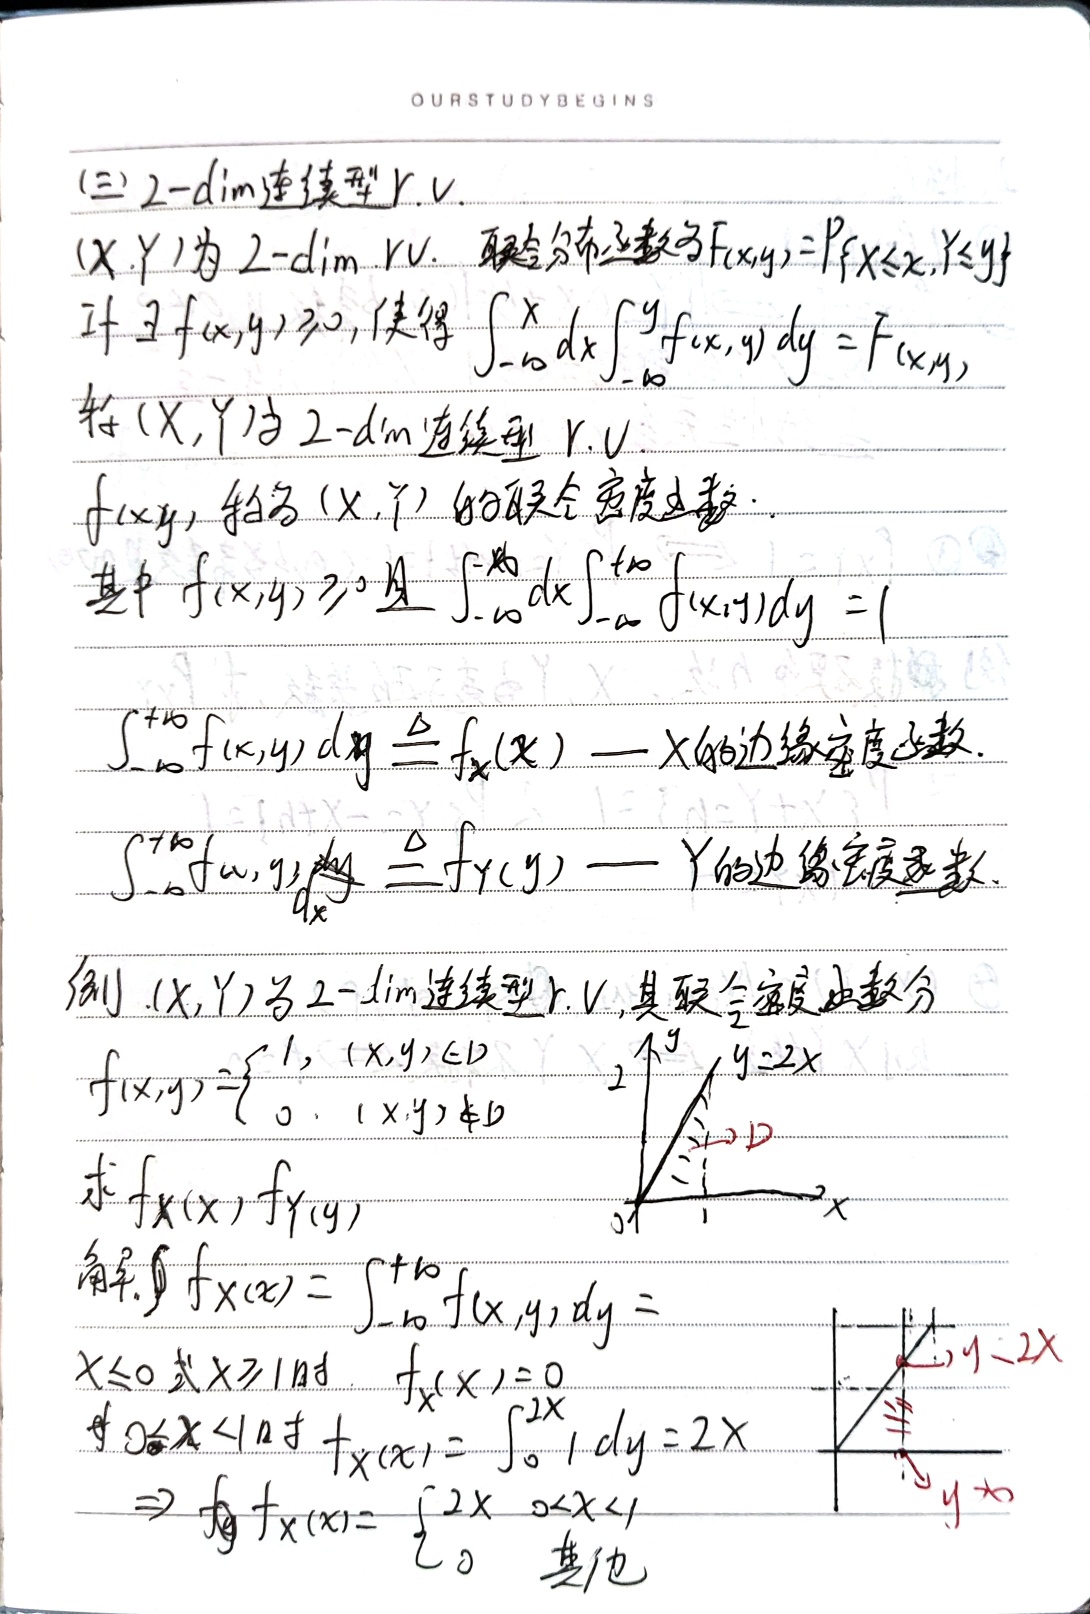 OURSTUDYBEGINS
(三) 2-dim连续型 r.v.
(X.Y)为 2-dim r.v. 联合分布函数为F(x,y)=P{X≤x,Y≤y}
计 ∃ f(x,y)≥0, 使得 ∫_{-∞}^{x} dx ∫_{-∞}^{y} f(x,y) dy = F(x,y)
称 (X,Y)为 2-dim 连续型 r.v.
f(x,y) 称为 (X,Y) 的联合密度函数.
其中 f(x,y)≥0 且 ∫_{-∞}^{+∞} dx ∫_{-∞}^{+∞} f(x,y) dy = 1
∫_{-∞}^{+∞} f(x,y) dy ≜ f_X(x) — X的边缘密度函数.
∫_{-∞}^{+∞} f(x,y) dx ≜ f_Y(y) — Y的边缘密度函数.
例 .(X,Y)为 2-dim连续型 r.v, 其联合密度函数分
f(x,y)={ 1, (x,y)∈D
0. (x,y)∉D
y
2
y=2x
D
0
1
x
求 f_X(x), f_Y(y)
解. f_X(x) = ∫_{-∞}^{+∞} f(x,y) dy =
x≤0 或 x≥1时 f_X(x)=0
y=2x
0≤x<1时 f_X(x) = ∫_0^{2x} 1 dy = 2x
⇒ f_X(x)= { 2x 0<x<1
0 其他